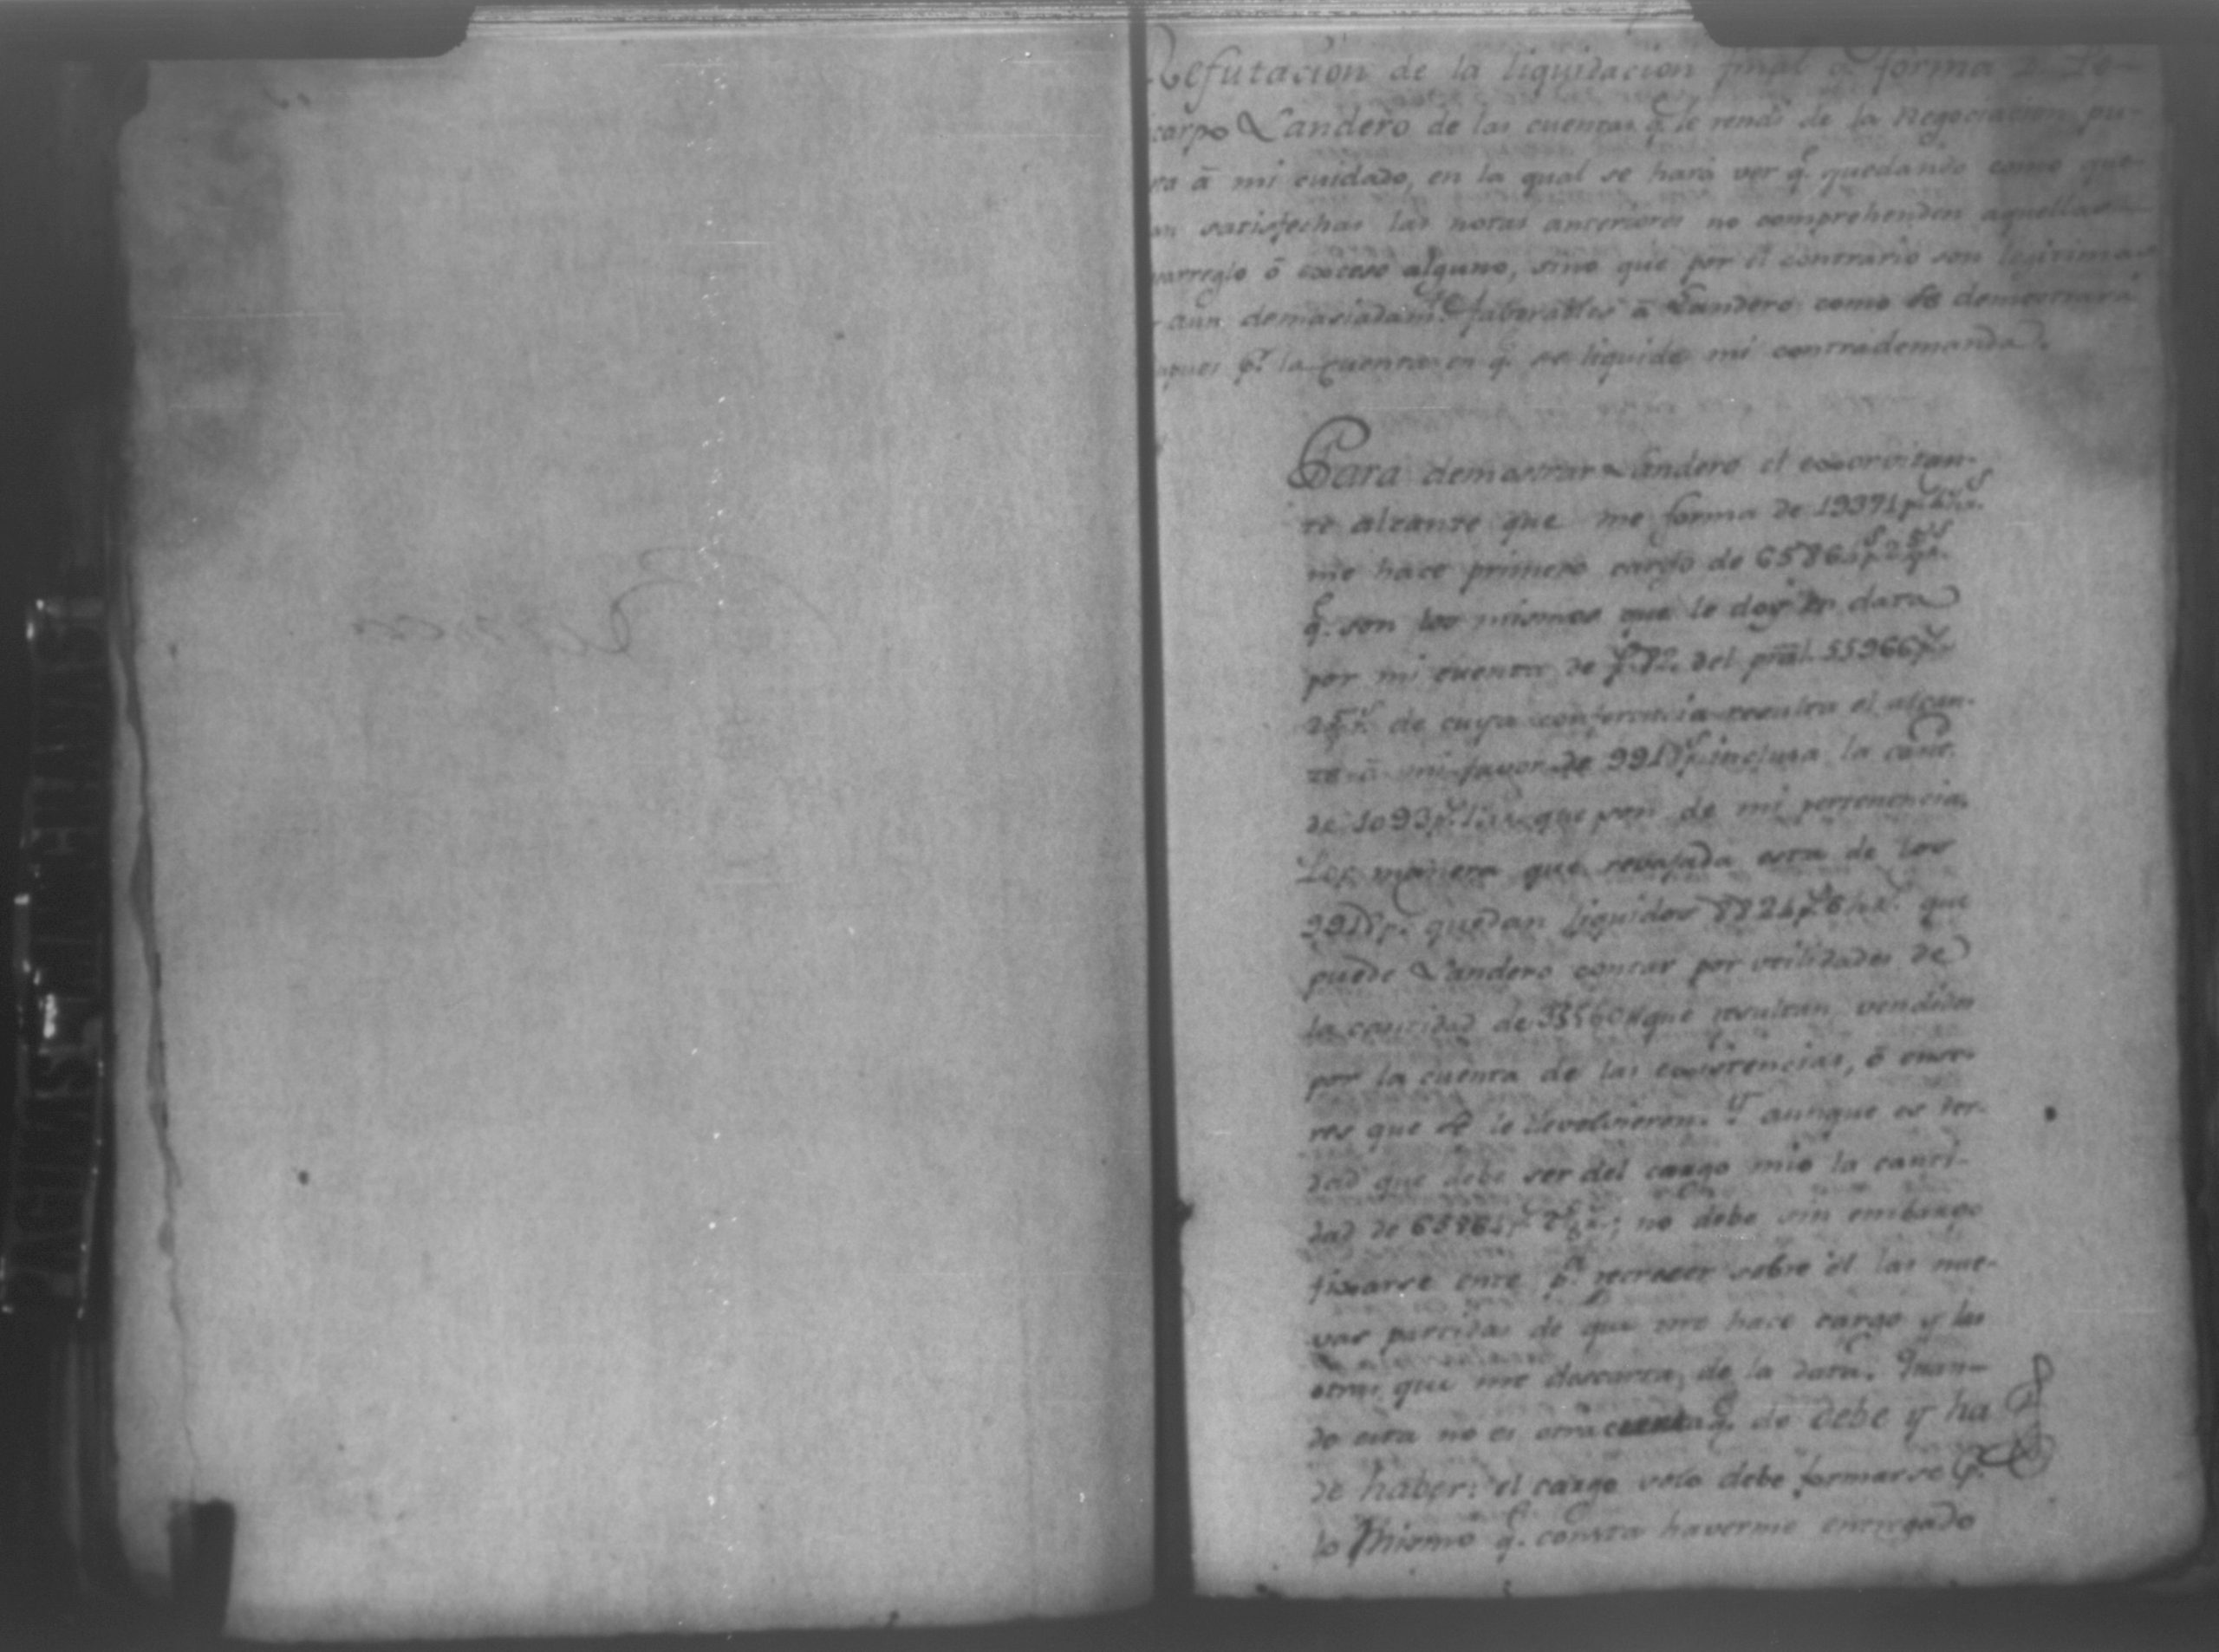 Refutacion de la liquidacion final q. forma D. Po-
carpo Landero de las cuentas q. le rendi de la negociacion pu-
ta â mi cuidado, en la qual se hará ver q. quedando como que-
an satisfechas las notas anteriores no comprehenden aquellas
arreglo ô exceso alguno, sino que por el contrario son legitimas
aun demasiadam.te faborables â Landero como se demostrará
spues p.r la cuenta en q. se liquide mi contrademanda.
Para demostrar Landero el exorvitan-
te alcanze que me forma de 19371 p.s
me hace primero cargo de 65864 p.s 2
q. son los mismos que le doy en data
por mi cuenta de f. 72. del pral. 55966 p.s
de cuya conferencia resulta el alcan-
ze â mi favor de 9918 p.s inclusa la cant.
de 1093 p.s que son de mi pertenencia.
Por manera que revajada esta de los
9918 p.s quedan liquidos 8824 p.s 6 que
puede Landero contar por utilidades de
la cantidad de que resultan vendidos
por la cuenta de las existencias, ô ense-
res que se le devolvieron. Y aunque es ver-
dad que debe ser del cargo mio la canti-
dad de 65864 p.s no debe sin embargo
fixarse ente p.a recrecer sobre el las nue-
vas partidas de que me hace cargo y las
otras que me descarta de la data. Quan-
do esta no es otra cuenta q. de debe y ha
de haber: el cargo solo debe formarse p.r
lo mismo q. consta haverme entregado